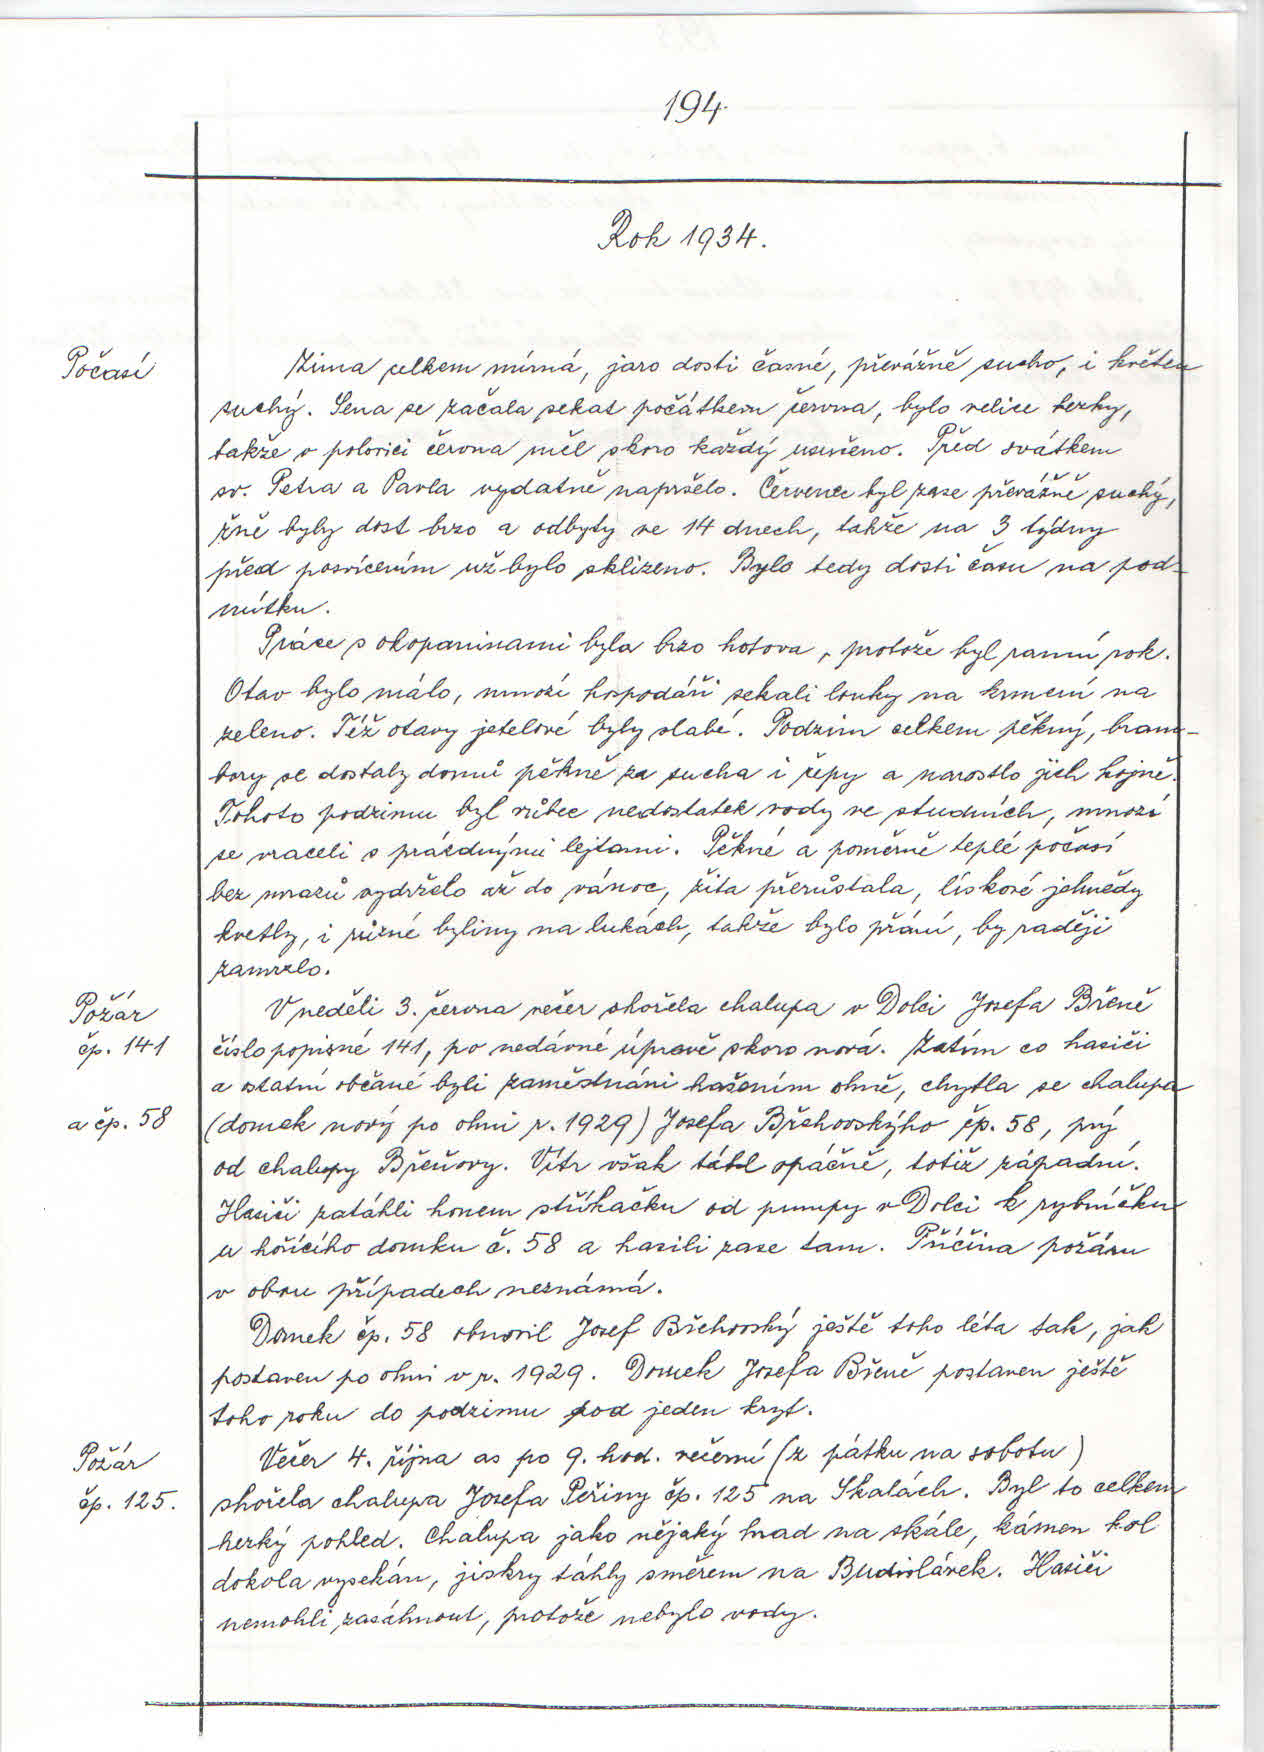 194
Rok 1934.
Počasí
Zima celkem mírná, jaro dosti časné, převážně sucho, i květen
suchý. Sena se začala sekat počátkem června, bylo velice hezky,
takže v polovici června měl skoro každý usušeno. Před svátkem
sv. Petra a Pavla vydatně napršelo. Červenec byl zase převážně suchý,
žně byly dost brzo a odbyty ve 14 dnech, takže na 3 týdny
před posvícením už bylo sklizeno. Bylo tedy dosti času na pod-
mítku.
Práce s okopaninami byla brzo hotova, protože byl ranní rok.
Otav bylo málo, mnozí hospodáři sekali louky na krmení na
zeleno. Též otavy jetelové byly slabé. Podzim celkem pěkný, bram-
bory se dostaly domů pěkně za sucha i řepy a narostlo jich hojně.
Tohoto podzimu byl vůbec nedostatek vody ve studních, mnozí
se vraceli s prázdnými lejtami. Pěkné a poměrně teplé počasí
bez mrazů vydrželo až do vánoc, žita přerůstala, lískové jehnědy
kvetly, i různé byliny na lukách, takže bylo přání, by raději
zamrzlo.
Požár
čp. 141
a čp. 58
V neděli 3. června večer shořela chalupa v Dolci Josefa Břeně
číslo popisné 141, po nedávné úpravě skoro nová. Zatím co hasiči
a ostatní občané byli zaměstnáni hašením ohně, chytla se chalupa
(domek nový po ohni r. 1929) Josefa Břehovského čp. 58, prý
od chalupy Břeňovy. Vítr však táhl opáčně, totiž západní.
Hasiči zatáhli honem stříkačku od pumpy v Dolci k rybníčku
u hořícího domku č. 58 a hasili zase tam. Příčina požáru
v obou případech neznámá.
Domek čp. 58 obnovil Josef Břehovský ještě toho léta tak, jak
postaven po ohni v r. 1929. Domek Josefa Břeně postaven ještě
toho roku do podzimu pod jeden kryt.
Požár
čp. 125.
Večer 4. října as po 9. hod. večerní (z pátku na sobotu)
shořela chalupa Josefa Peřiny čp. 125 na Skalách. Byl to celkem
hezký pohled. Chalupa jako nějaký hrad na skále, kámen kol
dokola vysekán, jiskry táhly směrem na Budislávek. Hasiči
nemohli zasáhnout, protože nebylo vody.